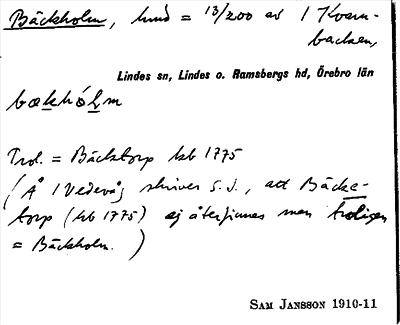 Bäckholm, hmd = 13/200 av 1 Kvarn-
backen,
Lindes sn, Lindes o. Ramsbergs hd, Örebro län
bækhólm
Trol. = Bäcktorp hb 1775
(Å 1 Vedevåg skriver S.J., att Bäcke-
torp (hb 1775) ej återfinnes men troligen
= Bäckholm. )
SAM JANSSON 1910-11